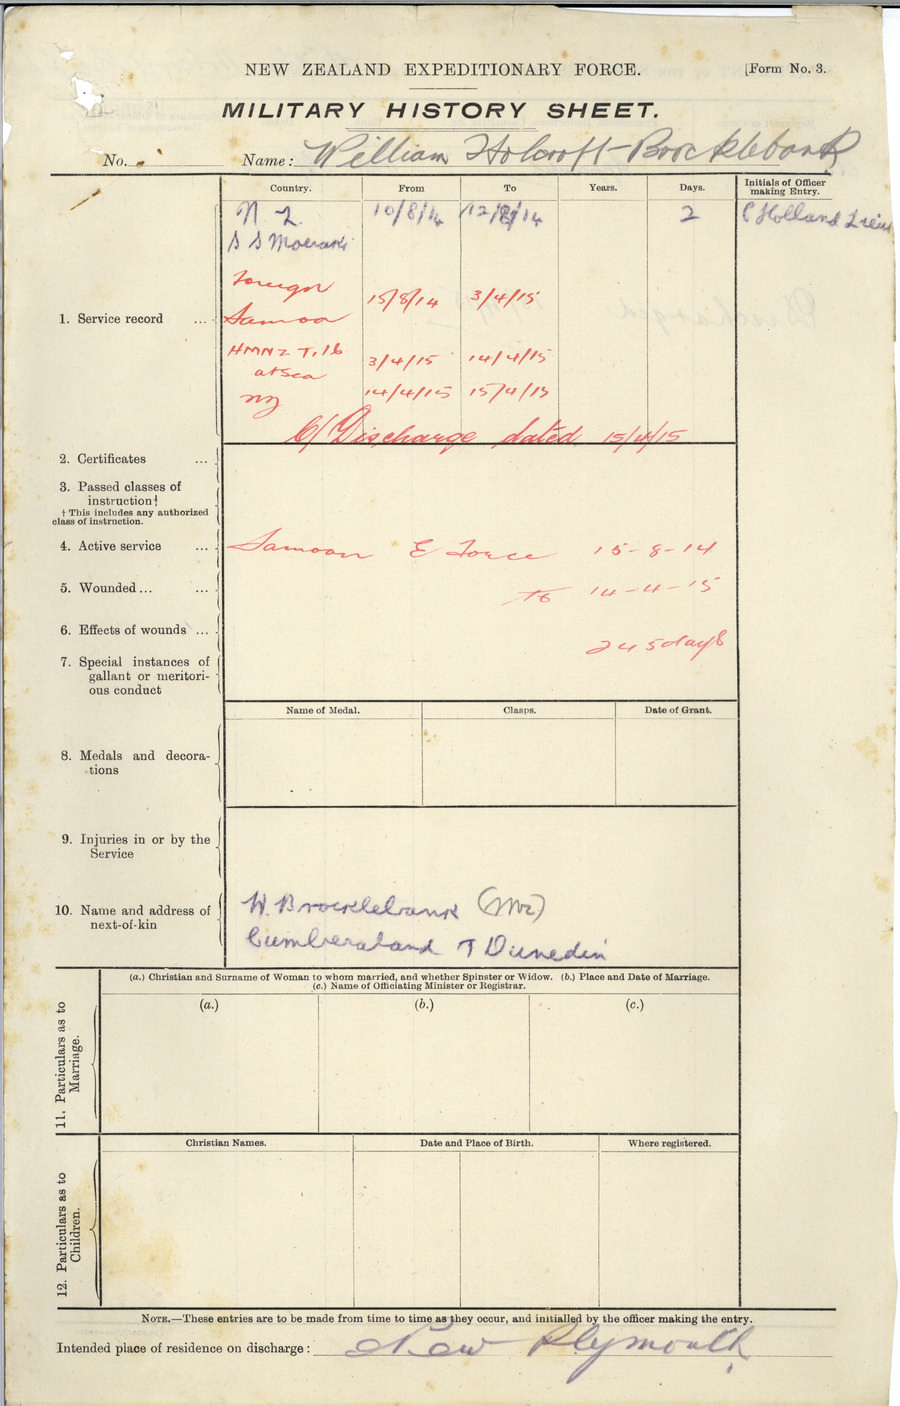 NEW ZEALAND EXPEDITIONARY FORCE.
[Form No. 3.
MILITARY HISTORY SHEET.
No.
Name: William Holcroft-Brocklebank
Country. From To Years. Days. Initials of Officer making Entry.
N Z. 10/8/14 12/8/14 2 Holland Lieu
S S Moeraki
1. Service record ...
Foreign
Samoa 15/8/14 3/4/15
HMNZ T. 16 at sea 3/4/15 14/4/15
NZ 14/4/15 15/4/15
Discharge dated 15/4/15
2. Certificates ...
3. Passed classes of
instruction†
† This includes any authorized
class of instruction.
4. Active service ... Samoan E Force 15-8-14
5. Wounded... ... to 14-4-15
6. Effects of wounds ... 245 days
7. Special instances of
gallant or meritori-
ous conduct
Name of Medal. Clasps. Date of Grant.
8. Medals and decora-
tions
9. Injuries in or by the
Service
10. Name and address of
next-of-kin
W. Brocklebank (Mr)
Cumberland T Dunedin
11. Particulars as to
Marriage.
(a.) Christian and Surname of Woman to whom married, and whether Spinster or Widow. (b.) Place and Date of Marriage.
(c.) Name of Officiating Minister or Registrar.
(a.) (b.) (c.)
12. Particulars as to
Children.
Christian Names. Date and Place of Birth. Where registered.
NOTE.—These entries are to be made from time to time as they occur, and initialled by the officer making the entry.
Intended place of residence on discharge: New Plymouth